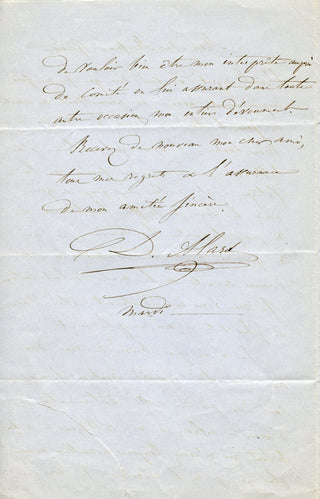 de vouloir bien être mon interprète auprès
du Comité en lui assurant dans toute
autre occasion mon entier dévouement.
Recevez de nouveau mon cher ami,
tous mes regrets & l'assurance
de mon amitié sincère.
D. Alard
mardi